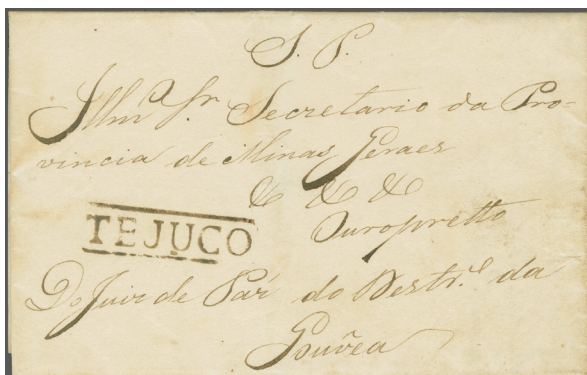 S. P.
Illmo. Sr. Secretario da Pro=
vincia de Minas Geraes
& & &
Ouropretto
TEJUCO
Do Juiz de Paz do Destr.o da
Gouvea